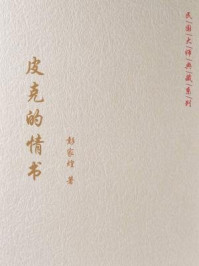 民国大师典藏系列
皮克的情书
彭家煌 著